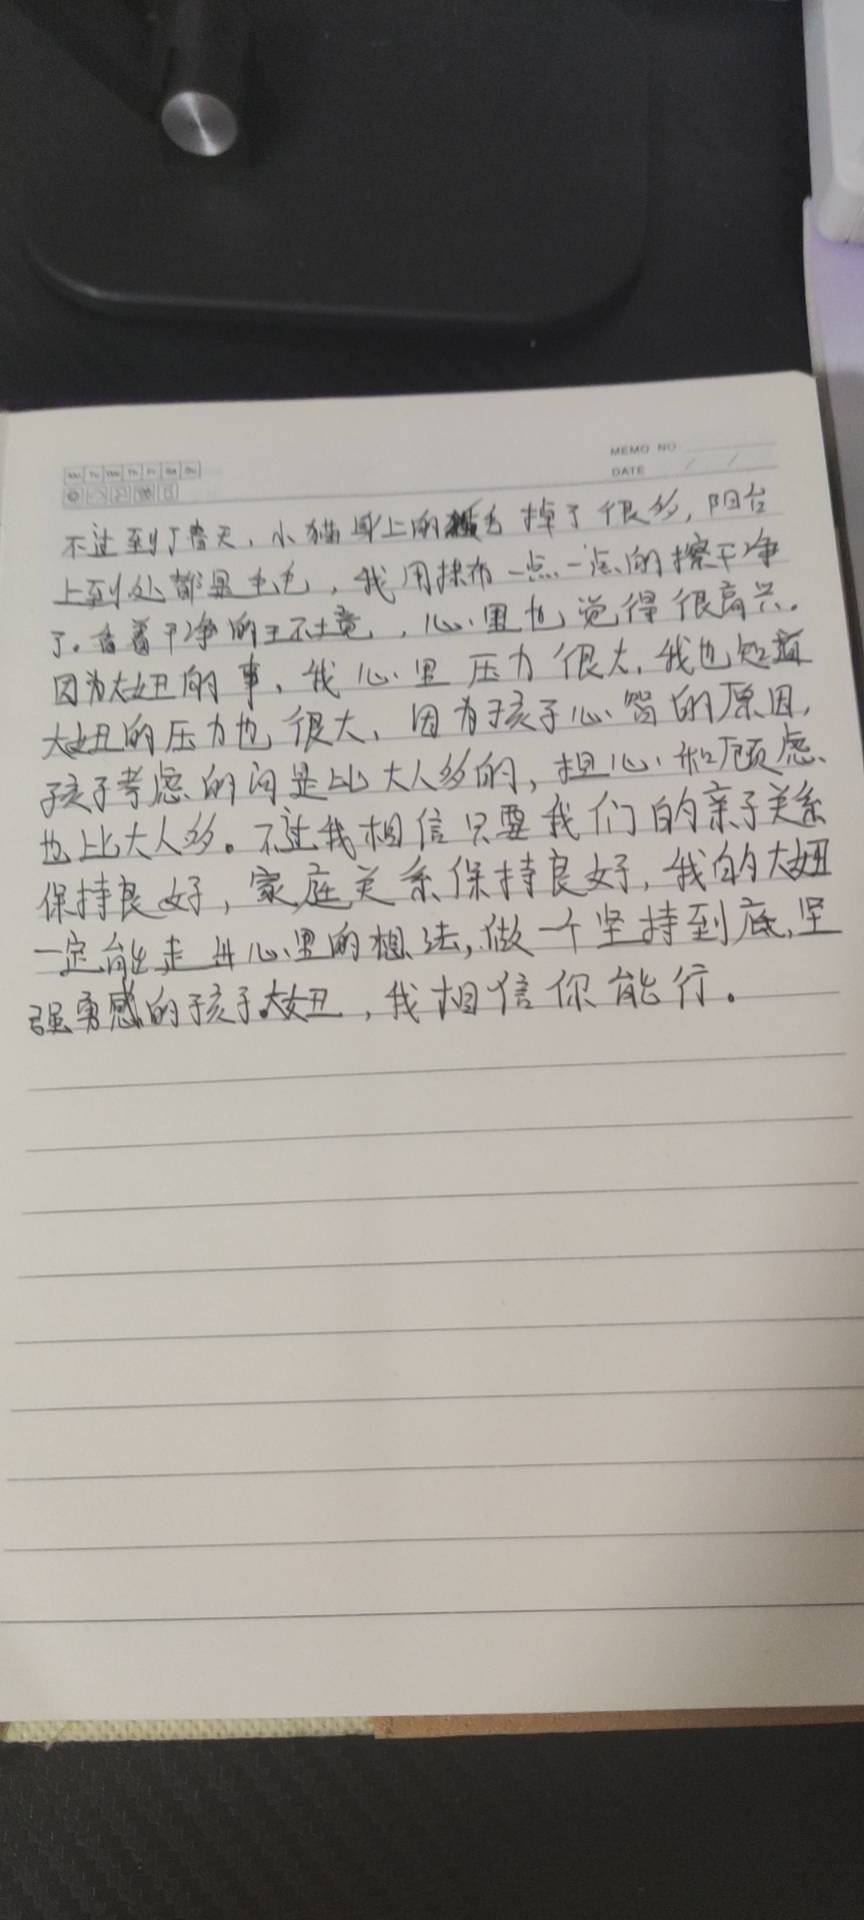 MEMO NO
DATE / /
Mo Tu We Th Fr Sa Su
不过到了春天,小猫身上的毛掉了很多,阳台
上到处都是毛毛,我用抹布一点一点的擦干净
了。看着干净的环境,心里也觉得很高兴。
因为大妞的事,我心里压力很大,我也知道
大妞的压力也很大,因为孩子心智的原因,
孩子考虑的问是比大人多的,担心和顾虑、
也比大人多。不过我相信只要我们的亲子关系
保持良好,家庭关系保持良好,我的大妞
一定能走出心里的想法,做一个坚持到底,坚
强勇感的孩子。大妞,我相信你能行。